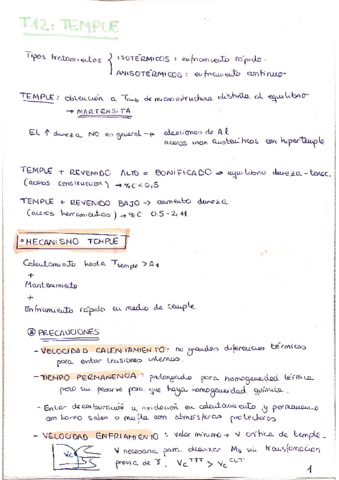 T12: TEMPLE
Tipos tratamientos { ISOTÉRMICOS: enfriamiento rápido.
ANISOTÉRMICOS: enfriamiento continuo
TEMPLE: obtención a Tamb de microestructura distinta al equilibrio
→ MARTENSITA
El ↑ dureza NO es general → aleaciones de Al
aceros inox austeníticos con hipertemple
TEMPLE + REVENIDO ALTO = BONIFICADO → equilibrio dureza-tenac.
(aceros construcción) → %C < 0,5
TEMPLE + REVENIDO BAJO → aumento dureza
(aceros herramientas) → %C 0.5-2,11
• MECANISMO TEMPLE
Calentamiento hasta Ttemple > A1
+
Mantenimiento
+
Enfriamiento rápido en medio de temple
PRECAUCIONES
- VELOCIDAD CALENTAMIENTO: no grandes diferencias térmicas
para evitar tensiones internas.
- TIEMPO PERMANENCIA: prolongado para homogeneidad térmica
pero sin pasarse para que haya homogeneidad química.
- Evitar decarburación u oxidación en calentamiento y permanencia
en horno sales o mufla con atmósferas protectoras
- VELOCIDAD ENFRIAMIENTO: valor mínimo → V crítica de temple.
Vc
V necesaria para alcanzar Ms sin transformación
previa de γ. Vc TTT > Vc CLT
1